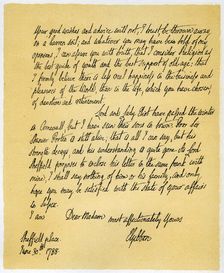 Your good wishes and advice will not, I trust, be thrown away
on a barren soil, and whatever you may have been told of my
opinions, I can assure you with truth, that I consider Religion as
the best guide of youth and the best support of old age; that
I firmly believe there is less real happiness in the business and
pleasures of the World, than in the life, which you have chosen,
of devotion and retirement.
Lord and Lady
have passed the winter
in Cornwall but I have seen
Porten is still alive; that is all I can say, but his
and his understanding is quite gone. As Lord
Sheffield proposes to enclose his letter in the same frank with
mine, I shall say nothing of him or his family, and only
hope you may be satisfied with the state of your affairs
in
I am
Dear Madam
most affectionately Yours
EGibbon
Sheffield place
June 30th 1788.